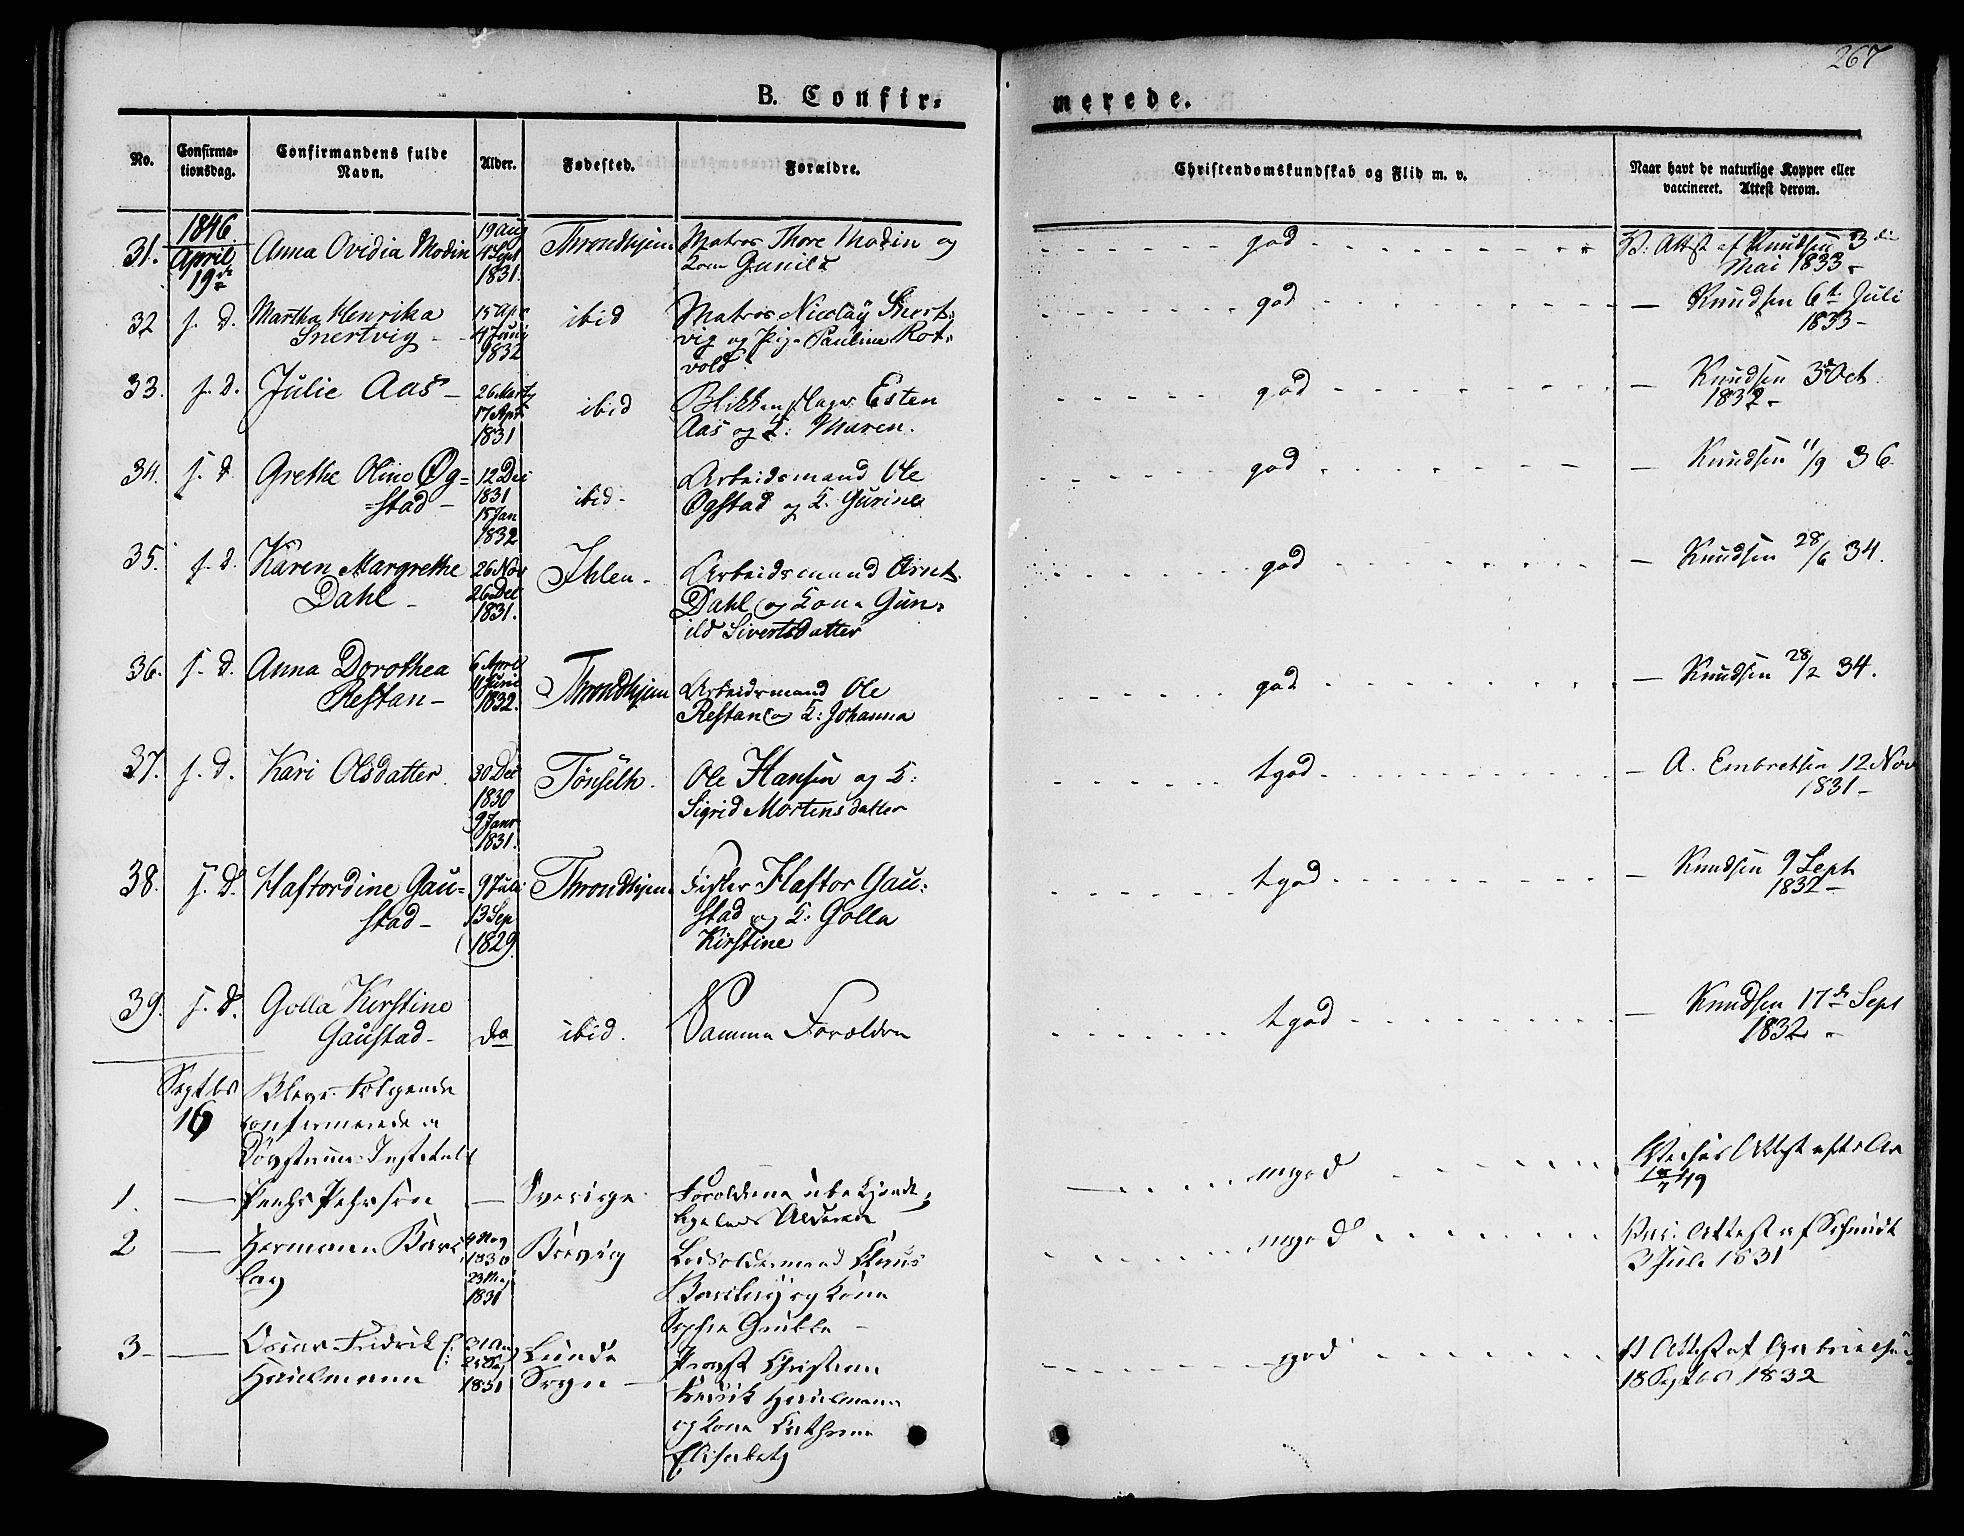 267
B. Confir-
merede.
No.
Confirma-
tionsdag.
Confirmandens fulde
Navn.
Alder.
Fødested.
Forældre.
Christendomskundskab og Flid m. v.
Naar havt de naturlige Kopper eller
vaccineret. Attest derom.
31.
1846
April
19de
Anna Ovidia Modin
19 Aug
4 Sept
1831.
Throndhjem
Matros Thore Modin og
Kone Gunild
god
V. Attest af Knudsen 3die
Mai 1833
32
s. d.
Martha Henrika
Snertvig
15 Apr
1832
ibid
Matros Nicolay Snert-
vig og Pige Pauline Rot-
vold
god
— Knudsen 6t Juli
1833
33.
s. d.
Julie Aas
26 Marts
17 Apr.
1831
ibid
Blikkenslager Esten
Aas og K: Maren.
god
— Knudsen 3d Oct.
1832
34.
s. d
Grethe Oline Øg-
stad
12 Dec
1831
15 Jan
1832
ibid
Arbeidsmand Ole
Øgstad og K. Gurine
god
— Knudsen 11/9 36.
35.
s. d.
Karen Margrethe
Dahl
26 Nov
26 Dec
1831.
Ihlen
Arbeidsmand Arnt
Dahl og Kone Gun-
ild Sivertsdatter
god
— Knudsen 28/6 34.
36.
s. d.
Anna Dorothea
Restan
6 April
11 Juni
1832.
Throndhjem
Arbeidsmand Ole
Restan og K: Johanna
god
— Knudsen 28/2 34.
37.
s. d.
Kari Olsdatter
30 Dec
1830
9 Janr
1831.
Tönseth.
Ole Hansen og K:
Sigrid Mortensdatter
tgod
— A. Embretsen 12 Nov
1831
38.
s. d.
Haftordine Gau-
stad
9 Juli
13 Sep
1829.
Throndhjem
Fisker Haftor Gau-
stad og K: Golla
Kirstine
tgod
— Knudsen 9 Sept
1832
39.
s. d.
Golla Kirstine
Gaustad
do
ibid.
Samme Forældre
tgod
— Knudsen 17de Sept
1832
Septbr
16
Bleve følgende
confirmerede i
Døvstumme-Institutet
1.
Pehrsen
Sverige
Forældrene ubekjendte,
mgod
49
2
Hermann Bari
lag
1830
23 Maj
1831
Brevig
og Kone
Sophie
mgod
Vac. Attest af Schmidt
3 Juli 1831
3
Fredrik
Heielmann
1831
Lunde
Sogn
Provst Christian
Fredrik Heielmann
og Kone Cathrine
Elisabeth
god
Attest af Gabrielsen
18 Septbr 1832